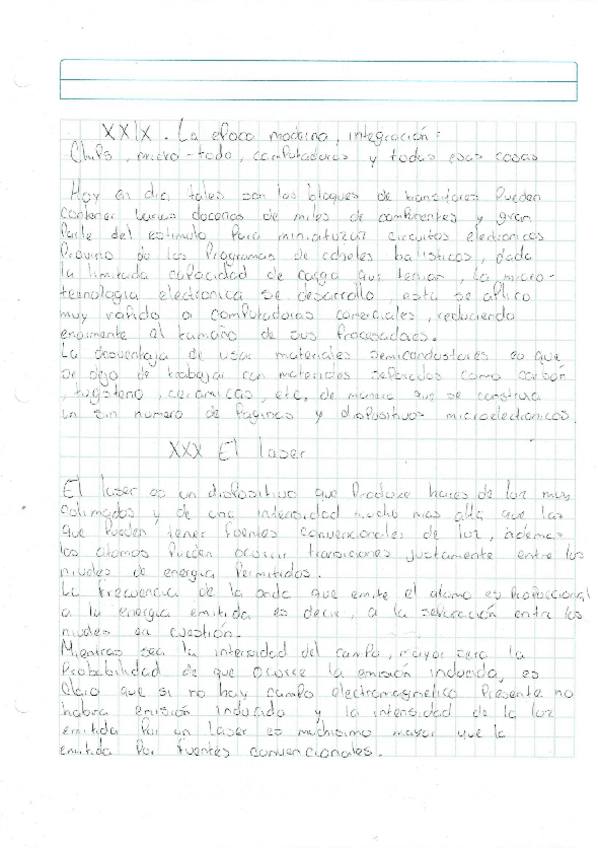 XXIX. La epoca moderna, integración:
Chips, micro-todo, computadoras y todas esas cosas
Hoy en dia, tales son los bloques de transitores Pueden
contener varias docenas de miles de componentes y gran
Parte del estimulo Para miniaturizar circuitos electronicos
Provino de los Programas de cohetes balisticos, dada
la limitada capacidad de carga que tenian, la micro-
tecnologia electronica se desarrollo, esta se aplico
muy rapido a computadoras comerciales, reduciendo
enormente el tamaño de sus Procesadores.
La desventaja de usar materiales semiconductores es que
se dejo de trabajar con materiales separados como carbón
, tugsteno, ceramicas, etc, de manera que se construia
un sin numero de Paginas y dispositivos microelectronicos.
XXX El laser
El laser es un dispositivo que Produze haces de luz muy
colimados y de una intensidad mucho mas alta que las
que Pueden tener fuentes convencionales de luz, ademas
los atomos Pueden ocurrir transiciones justamente entre los
niveles de energia Permitidos.
La frecuencia de la onda que emite el atomo es Proporcional
a la energia emitida es decir, a la separación entre los
niveles en cuestión.
Mientras sea la intersidad del campo, mayor sera la
Probabilidad de que ocurre la emisión inducida, es
Claro que si no hay campo electromagnetico Presente no
habra emisión inducida y la intensidad de la luz
emitida Por un Laser es muchisimo mayor que la
emitida Por fuentes convencionales.